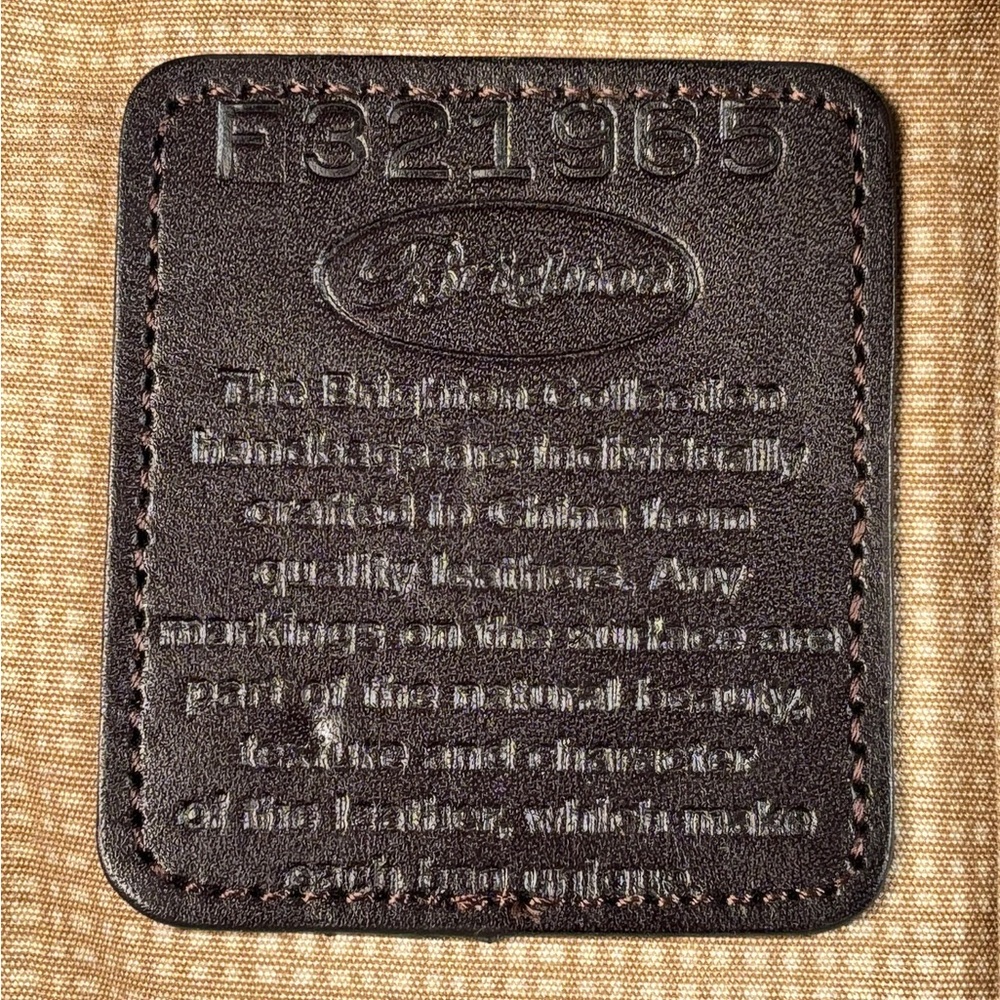 F321965
Brighton
The Brighton Collection
handbags are individually
crafted in China from
quality leathers. Any
markings on the surface are
part of the natural beauty,
texture and character
of the leather, which make
each bag unique.